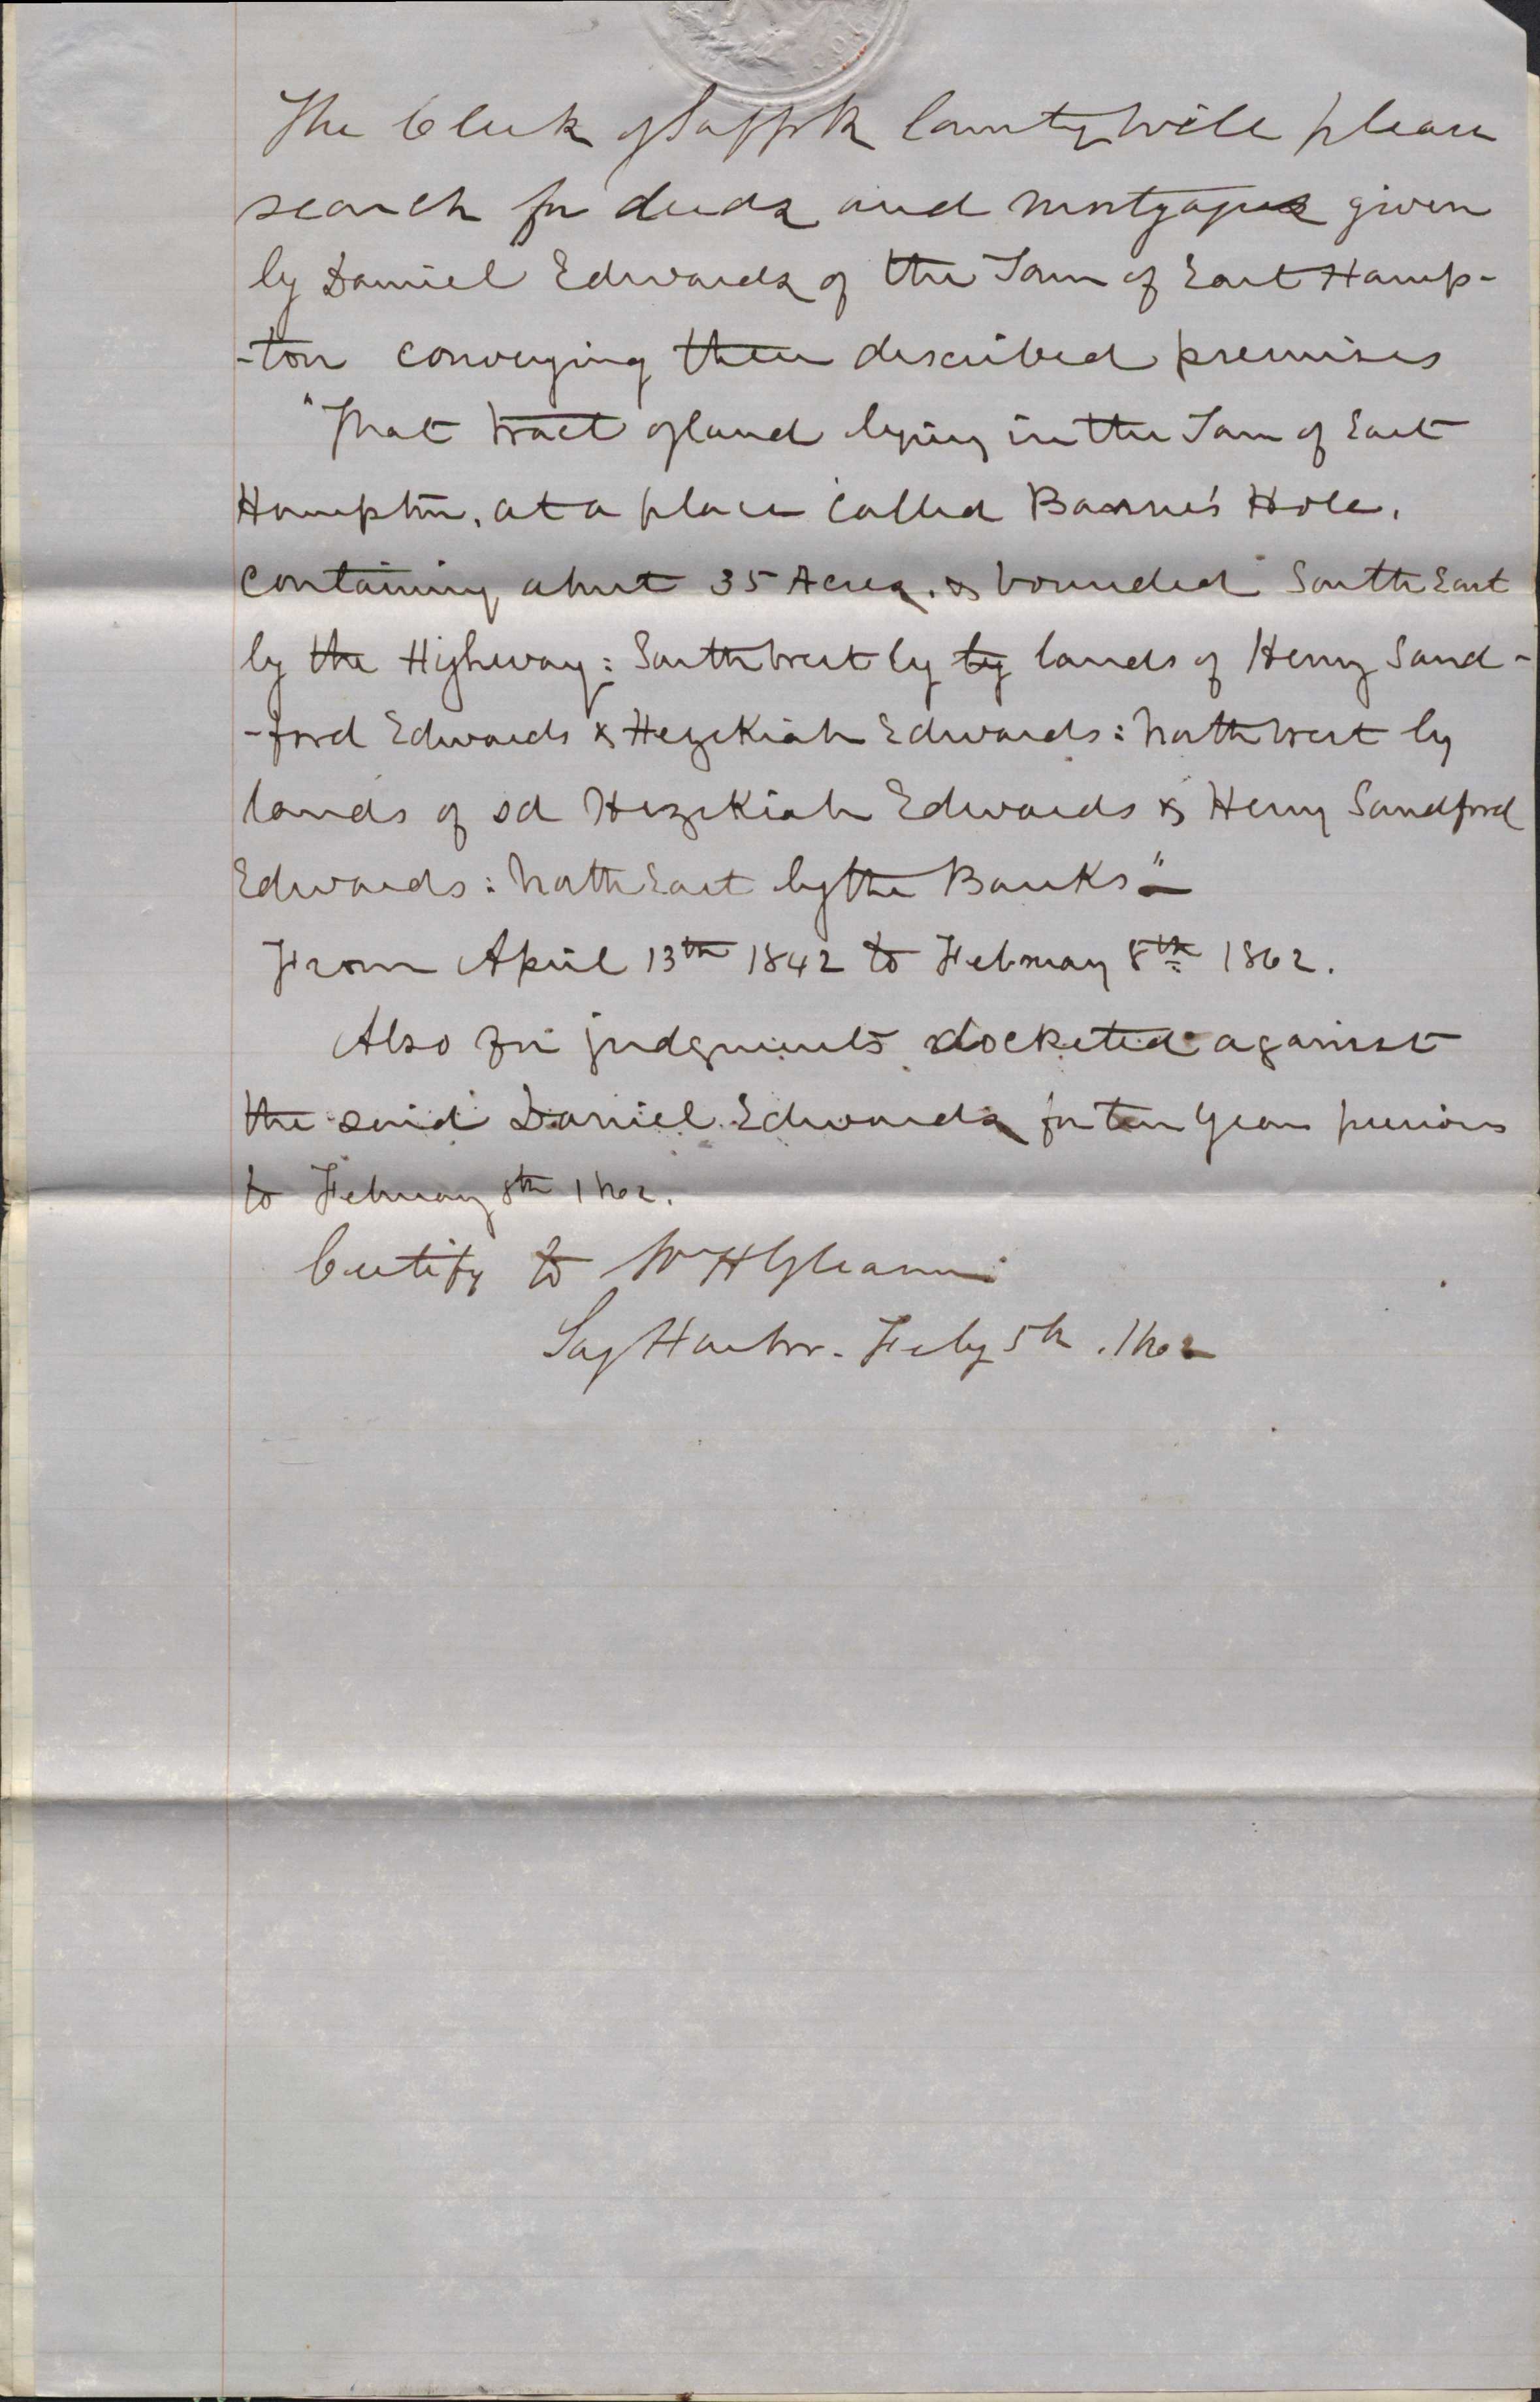 The Clerk of Suffolk County will please
search for deeds and mortgages given
by Daniel Edwards of the Town of East Hamp-
-ton conveying these described premises
"That tract of land lying in the Town of East
Hampton, at a place called Barne's Hole,
containing about 35 Acres, & bounded South East
by the Highway: South West by by lands of Henry Sand-
-ford Edwards & Hezekiah Edwards: North West by
lands of sd Hezekiah Edwards & Henry Sandford
Edwards: North East by the Banks"
From April 13th 1842 to February 8th 1862.
Also for judgments docketed against
the said Daniel Edwards for ten years previous
to February 8th 1862.
Certify to Wm H Gleason
Sag Harbor. Feby 5th, 1862